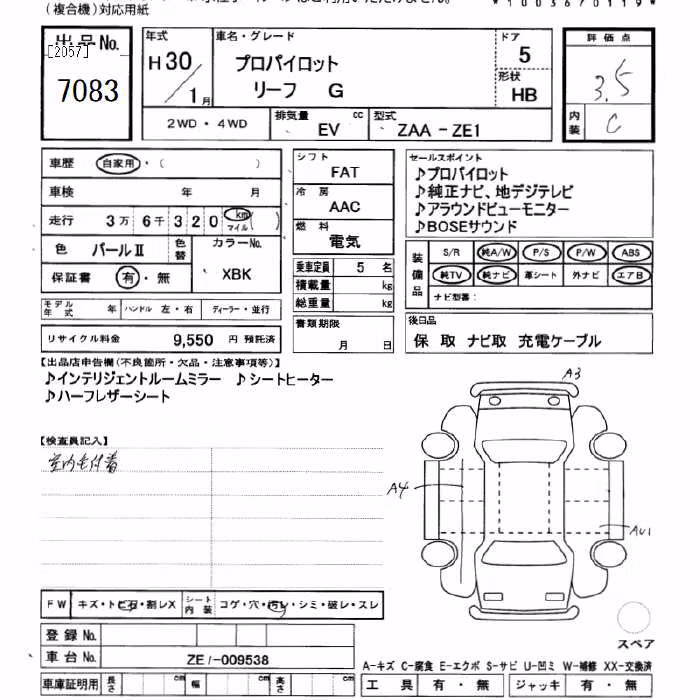 (複合機)対応用紙
出品No.
[2057]
7083
年式
H30/1月
車名・グレード
プロパイロット
リーフ G
ドア
5
形状
HB
評価点
3.5
内装
C
2WD・4WD
排気量 cc
EV
型式
ZAA-ZE1
車歴 自家用・( )
車検 年 月
走行 3万6千320 km マイル ( )
色 パールⅡ 色替
カラーNo.
XBK
保証書 有・無
モデル年式 年 ハンドル 左・右 ディーラー・並行
リサイクル料金 9,550 円 預託済
シフト
FAT
冷房
AAC
燃料
電気
乗車定員 5 名
積載量 kg
総重量 kg
書類期限
月 日
セールスポイント
♪プロパイロット
♪純正ナビ、地デジテレビ
♪アラウンドビューモニター
♪BOSEサウンド
装備品
S/R 純A/W P/S P/W ABS
純TV 純ナビ 革シート 外ナビ エアB
ナビ型番:
後日品
保 取 ナビ取 充電ケーブル
【出品店申告欄(不良箇所・欠品・注意事項等)】
♪インテリジェントルームミラー ♪シートヒーター
♪ハーフレザーシート
【検査員記入】
室内毛付着
A3
A4
AU1
FW キズ・トビ石・割レX シート内装 コゲ・穴・汚レ・シミ・破レ・スレ
登録No.
車台No. ZE1-009538
車庫証明用 長さ cm 幅 cm 高さ cm
スペア
A-キズ C-腐食 E-エクボ S-サビ U-凹ミ W-補修 XX-交換済
工具 有・無 ジャッキ 有・無